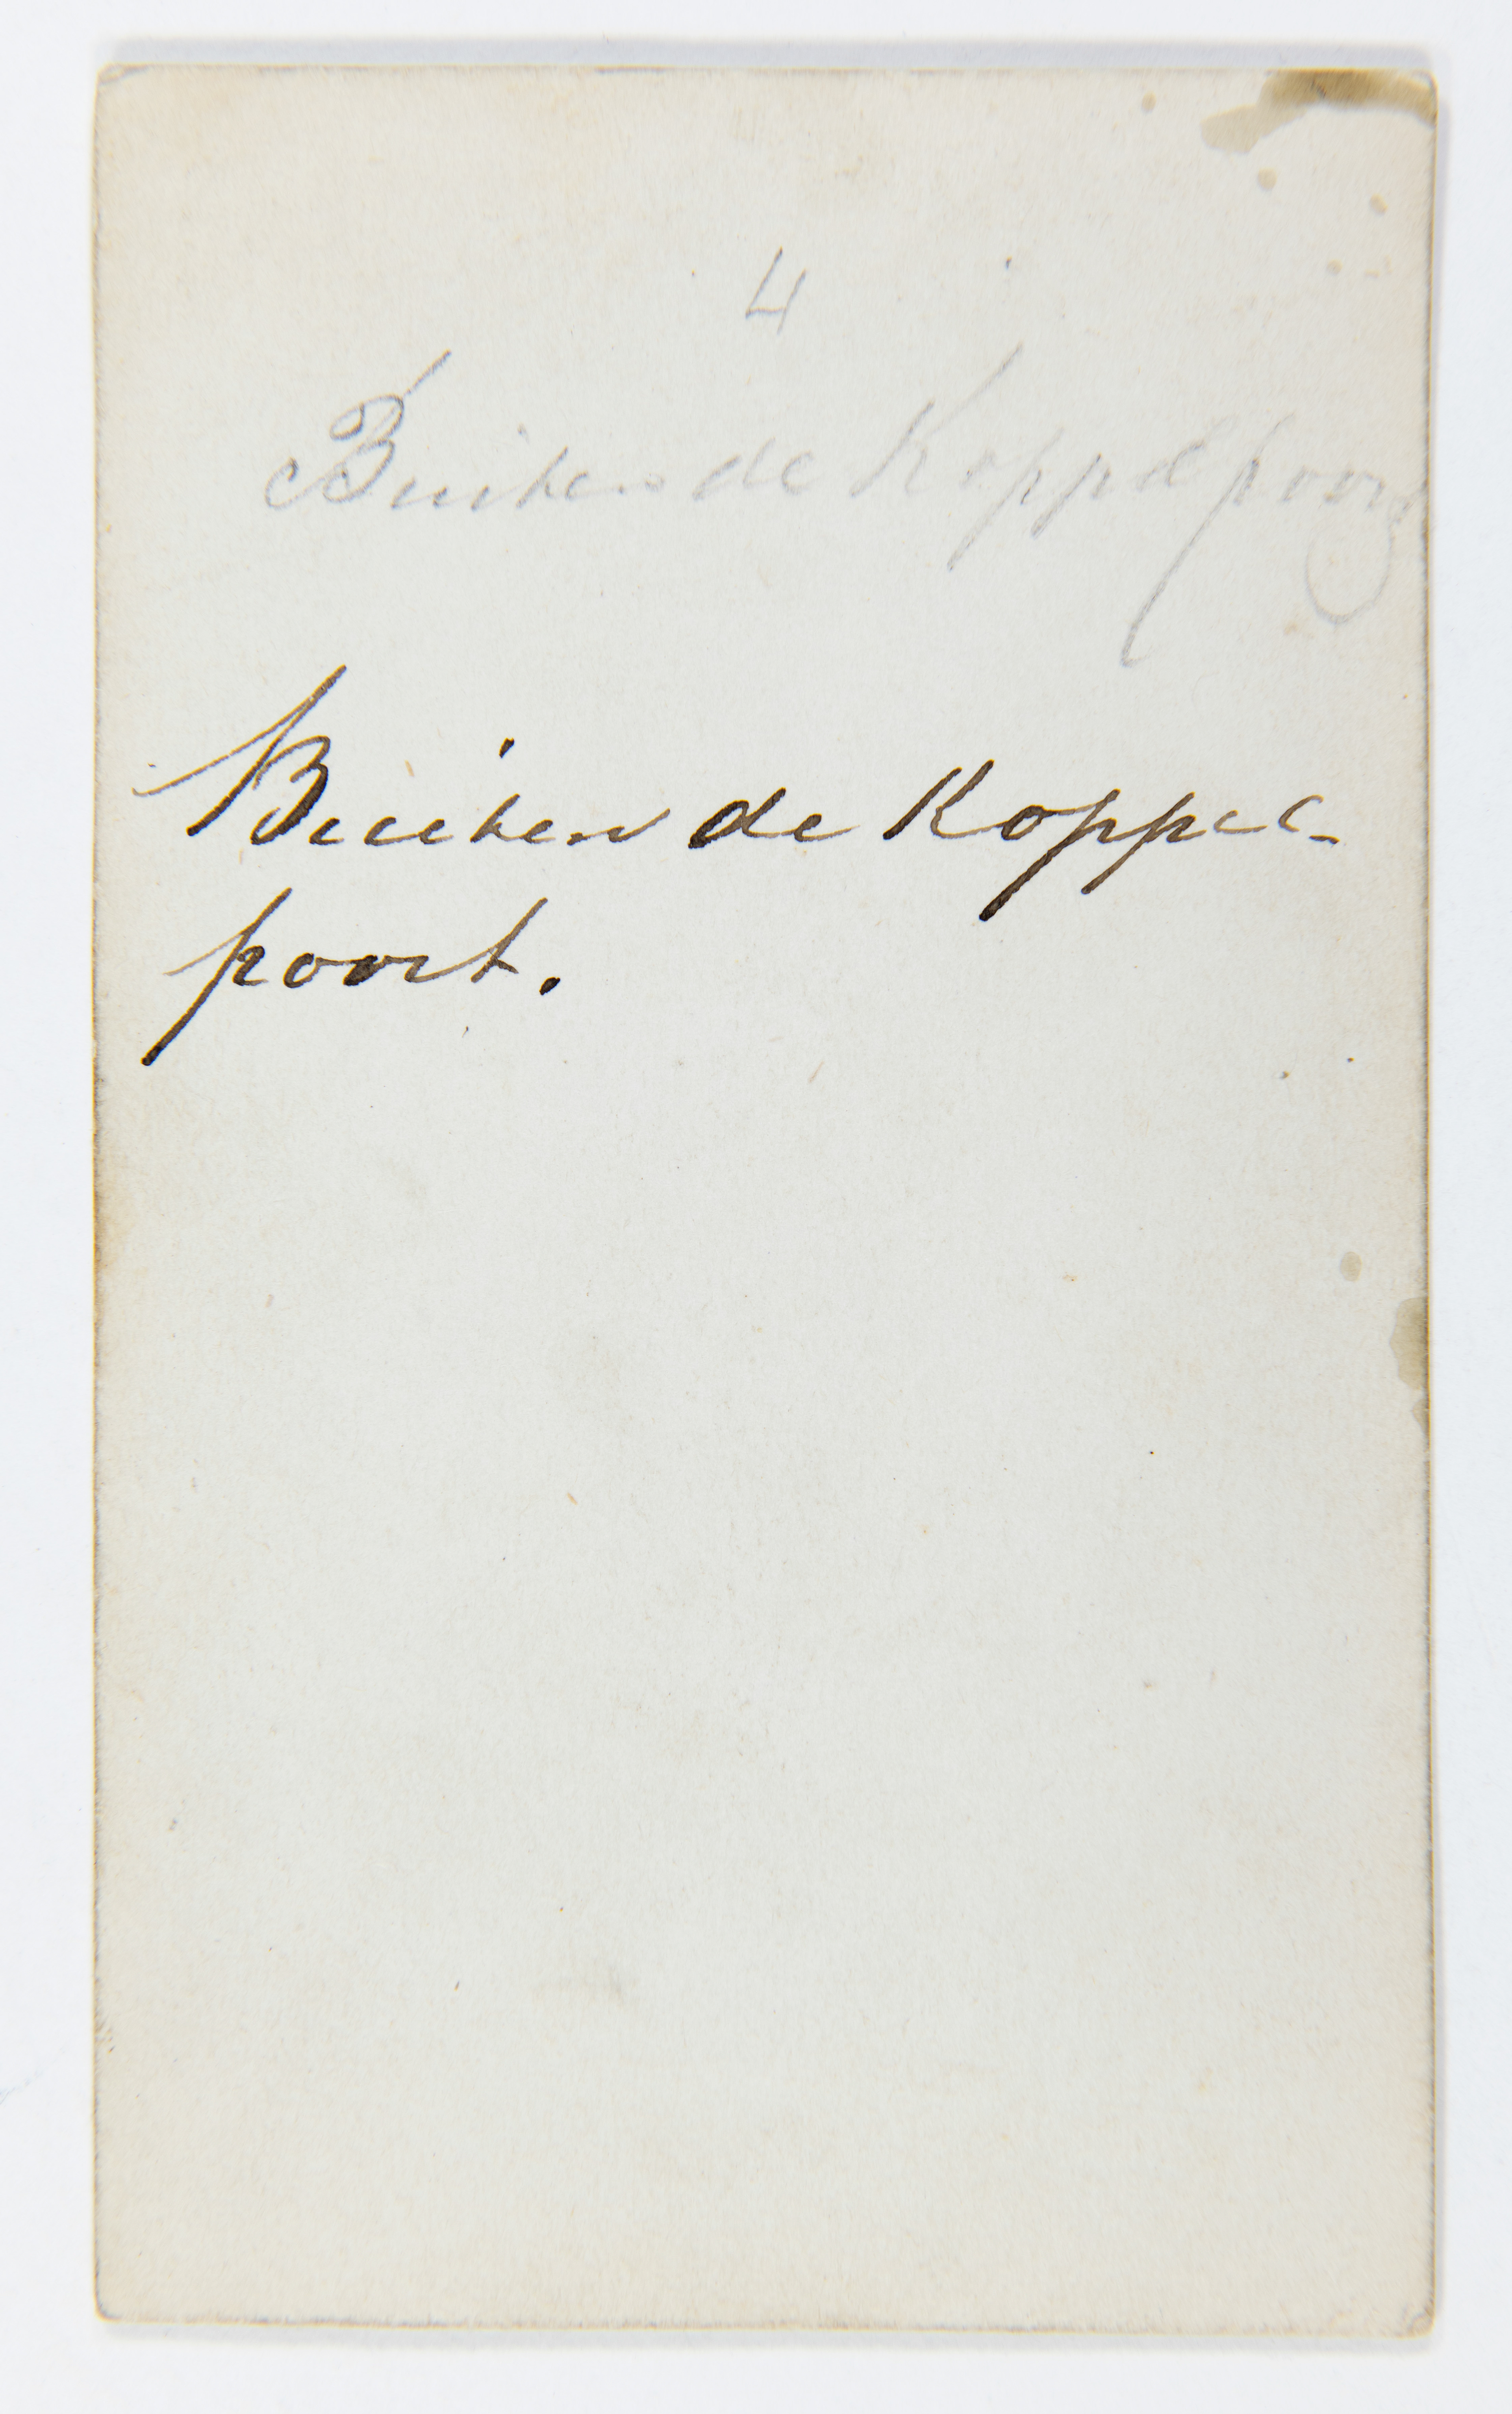 4
Buiten de Koppelpoort
Buiten de Koppel-
poort.